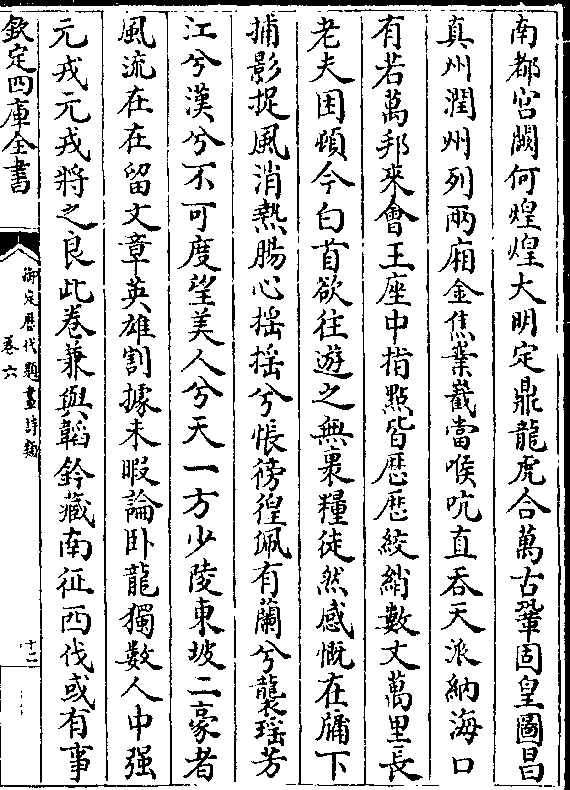 南都宫闕何煌煌大明定鼎龍虎合萬古鞏固皇圖昌
真州潤州列兩廂金焦業嶻當喉吭直吞天派納海口
有若萬邦來會王座中指點皆歴歴絞綃數丈萬里長
老夫困頓今白首欲往遊之無裹糧徒然感慨在牖下
捕影捉風消熱腸心揺揺兮悵徬徨珮有蘭兮襲瑶芳
江兮漢兮不可度望美人兮天一方少陵東坡二豪者
風流在在留文章英雄割據未暇論卧龍獨數人中强
元戎元戎將之良此卷兼與韜鈐藏南征西伐或有事
欽定四庫全書
御定歴代題畫詩類
卷六
十二